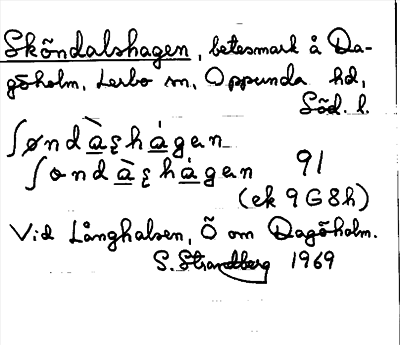 Sköndalshagen, betesmark å Da-
göholm, Lerbo sn, Oppunda hd,
Söd. l.
ʃøndà̲ʂhá̲gan
ʃondà̲ʂhà̲gan 91
(ek 9G8h)
Vid Långhalsen, Ö om Dagöholm.
S. Strandberg 1969